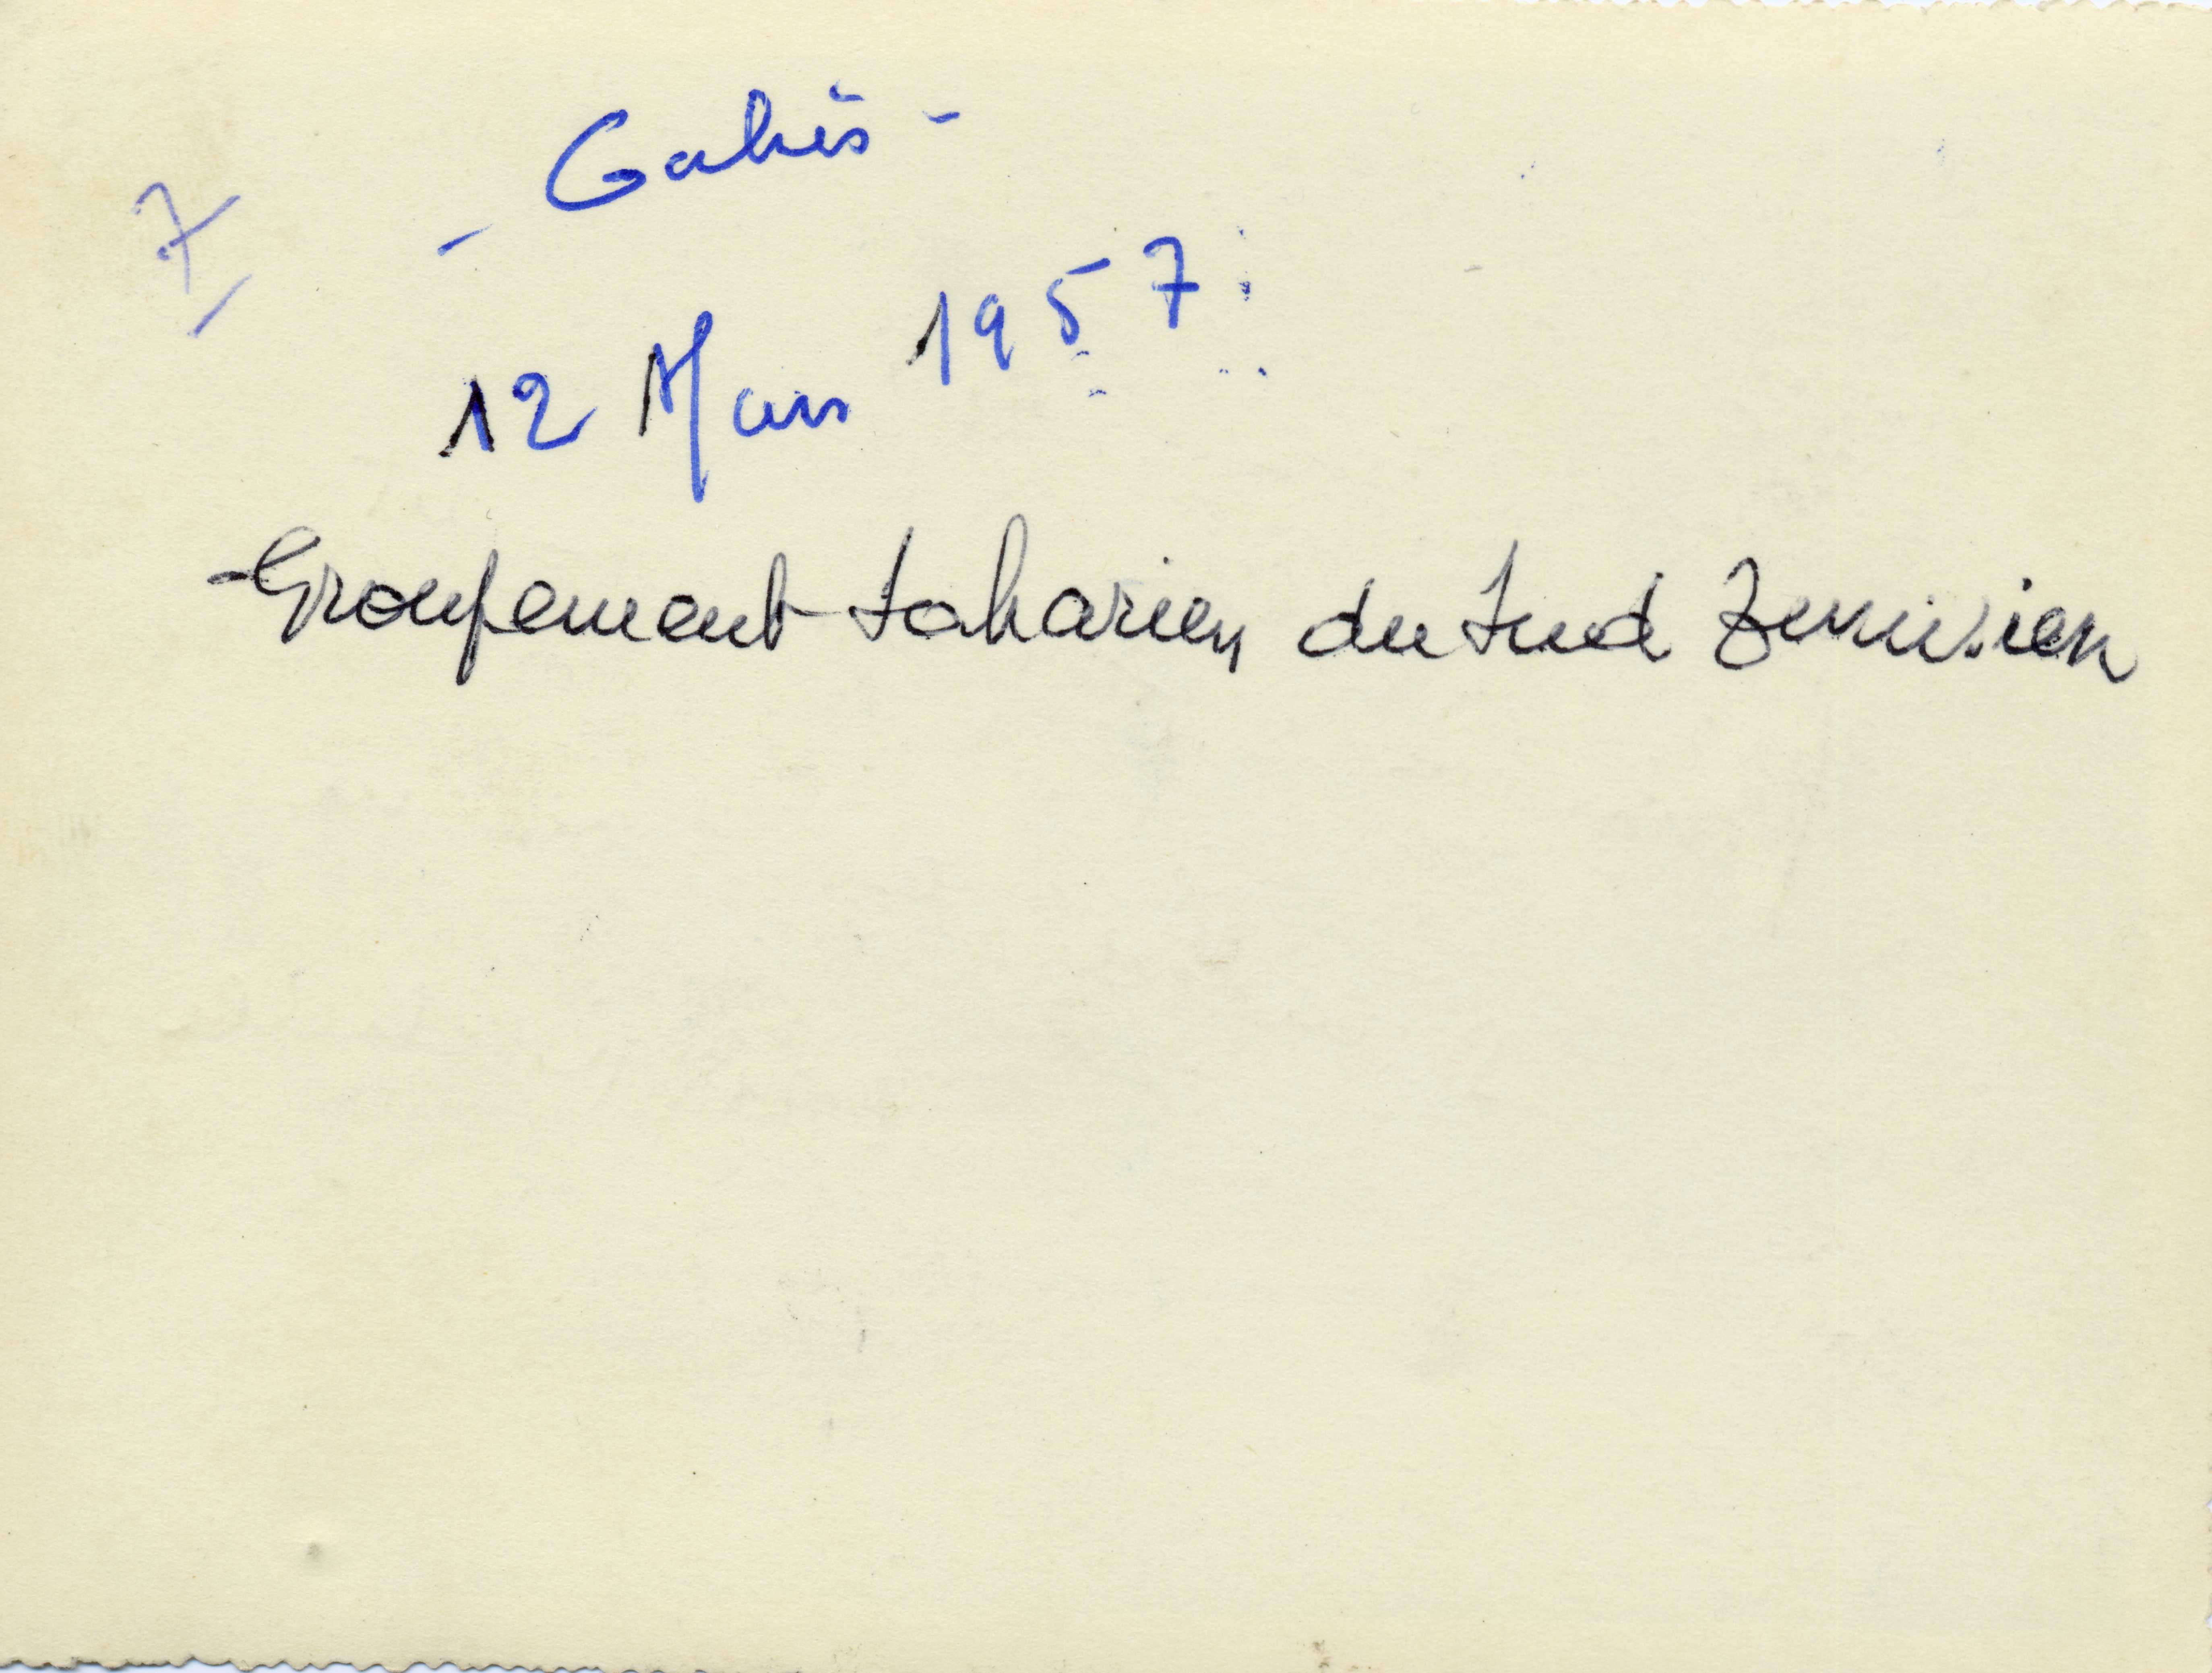 7
- Gabès -
12 Mars 1957
- Groupement Saharien du Sud Tunisien